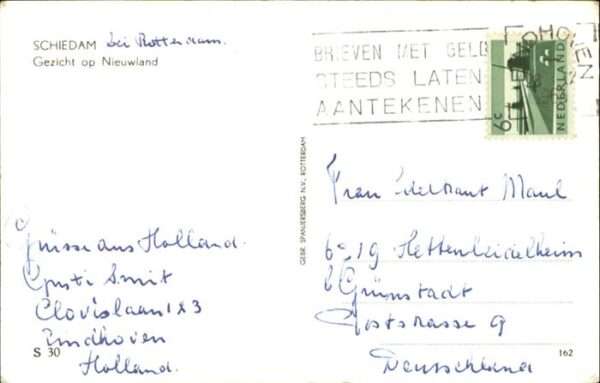 SCHIEDAM bei Rotterdam.
Gezicht op Nieuwland
Grüsse aus Holland.
Gusti Smit
Clovislaan 123
Eindhoven
Holland.
S 30
GEBR. SPANJERSBERG N.V., ROTTERDAM
BRIEVEN MET GELD
STEEDS LATEN
AANTEKENEN
EINDHOVEN
6c
NEDERLAND
Frau Edeltraut Maul
6719 Hettenleidelheim
b Grünstadt
Poststrasse 9
Deutschland
162